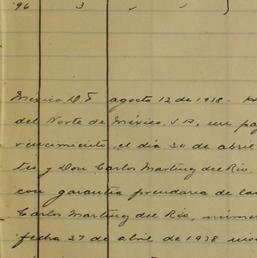 96 3 " "
México D.F. agosto 12 de 1938.
del Norte de México, S.A., un pa
vencimiento el día 30 de abril
tro y Don Carlos Martínez del Río
con garantía prendaria de la
Carlos Martínez del Río, número
fecha 27 de abril de 1938